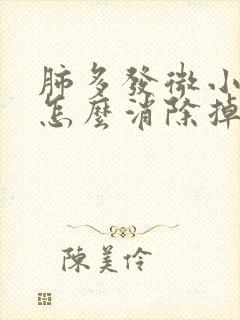 肺多發微小
怎麼消除掉
陳美伶